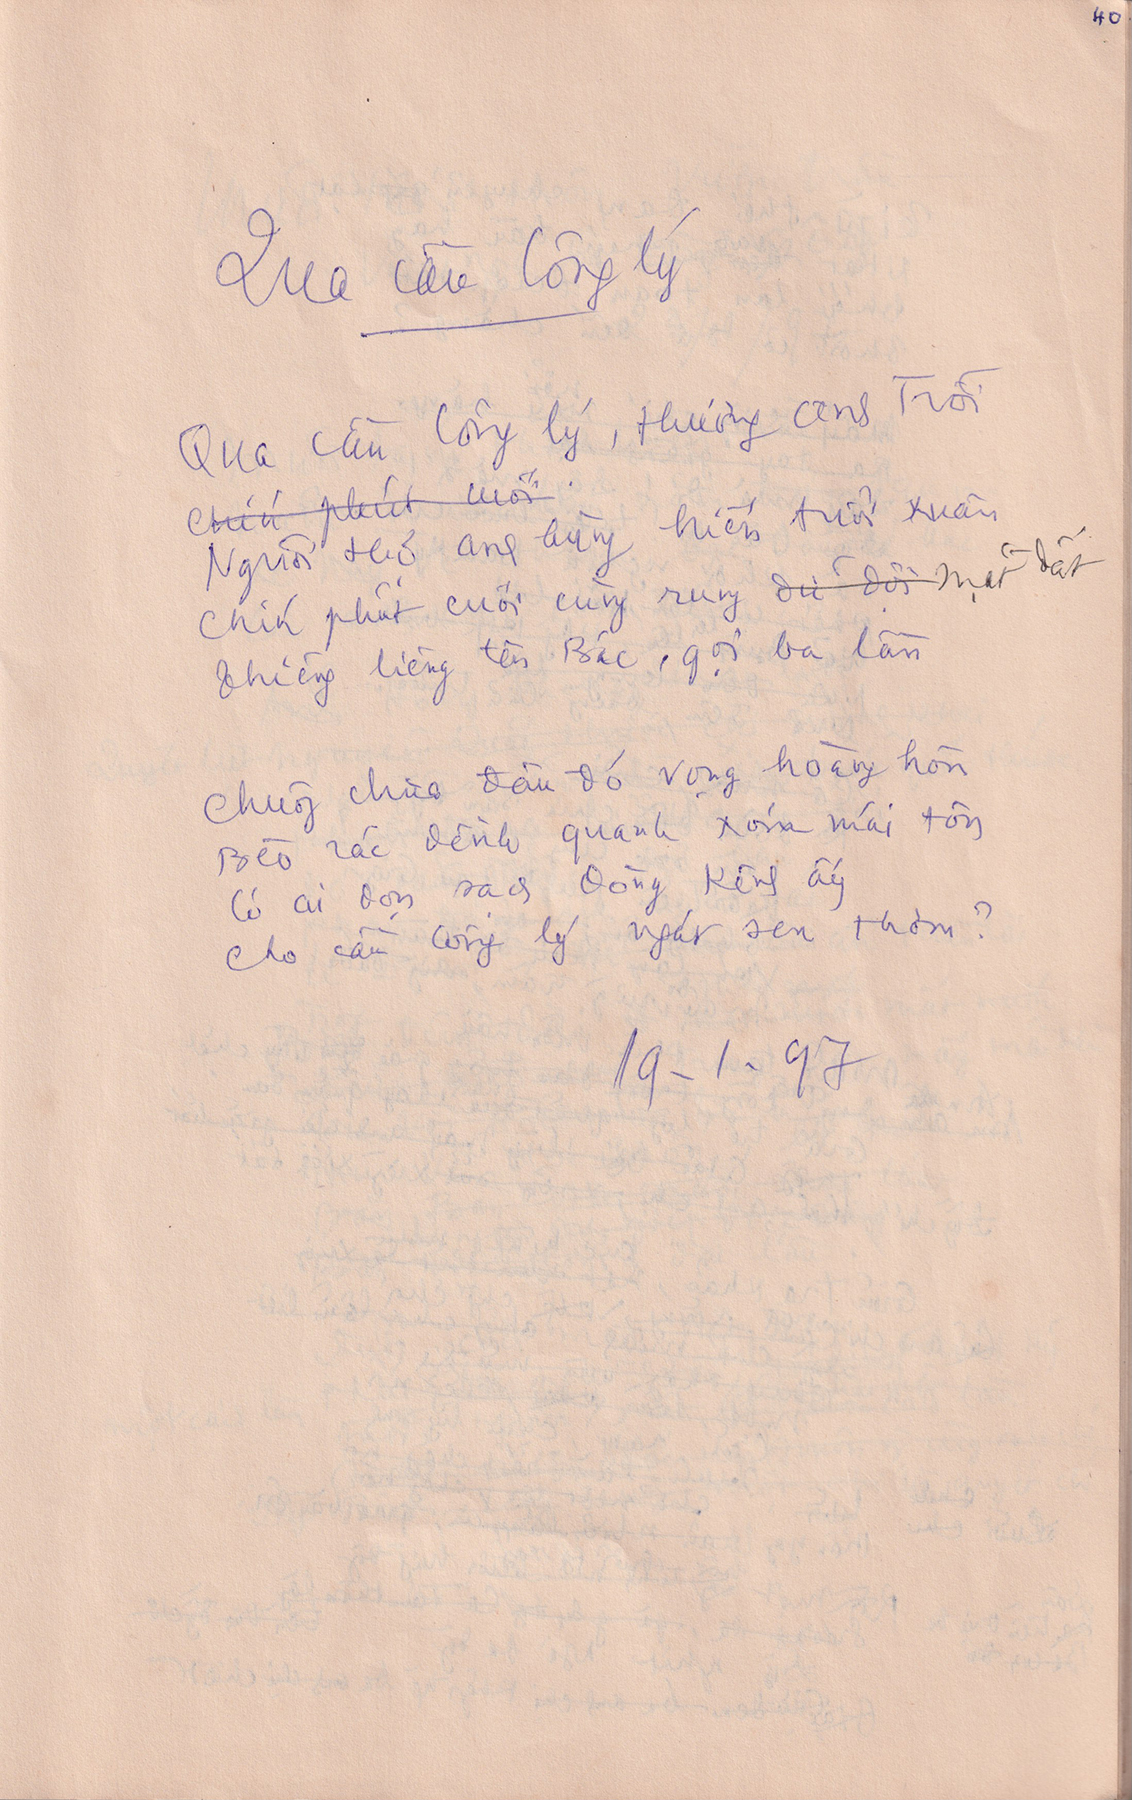 40
Qua cầu Công lý
Qua cầu Công lý, thương anh Trỗi
Chín phút cuối
Người thợ anh hùng hiến tuổi xuân
Chín phút cuối cùng rung dữ dội mặt đất
Thiêng liêng tên Bác, gọi ba lần
Chuông chùa đâu đó vọng hoàng hôn
Bèo rác dềnh quanh xóm mái tôn
Có ai dọn sạch dòng kênh ấy
Cho cầu Công lý ngát sen thơm?
19-1-97